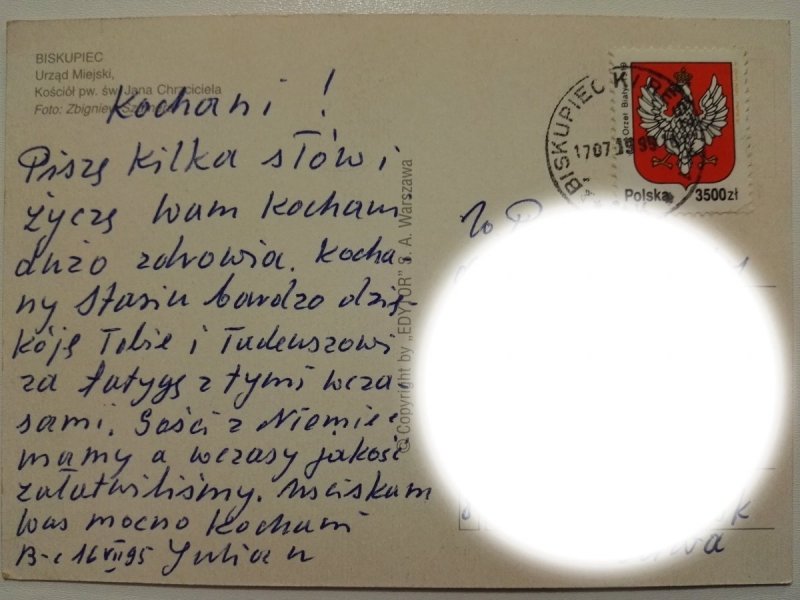 BISKUPIEC
Urząd Miejski,
Kościół pw. św. Jana Chrzciciela
Foto: Zbigniew
Kochani!
Piszę kilka słów i
życzę wam kochani
dużo zdrowia. Kocha-
ny Stasiu bardzo dzię-
kóję Tobie i Tadeuszowi
za fatygę z tymi wcza-
sami. Gości z Niemiec
mamy a wczasy jakość
załatwiliśmy. Usciskam
was mocno Kochani
B-c 16 VII 95 Julian
© Copyright by „EDYTOR" S. A. Warszawa
BISKUPIEC K/RE
17 07 95
Orzeł Biały
Polska 3500zł